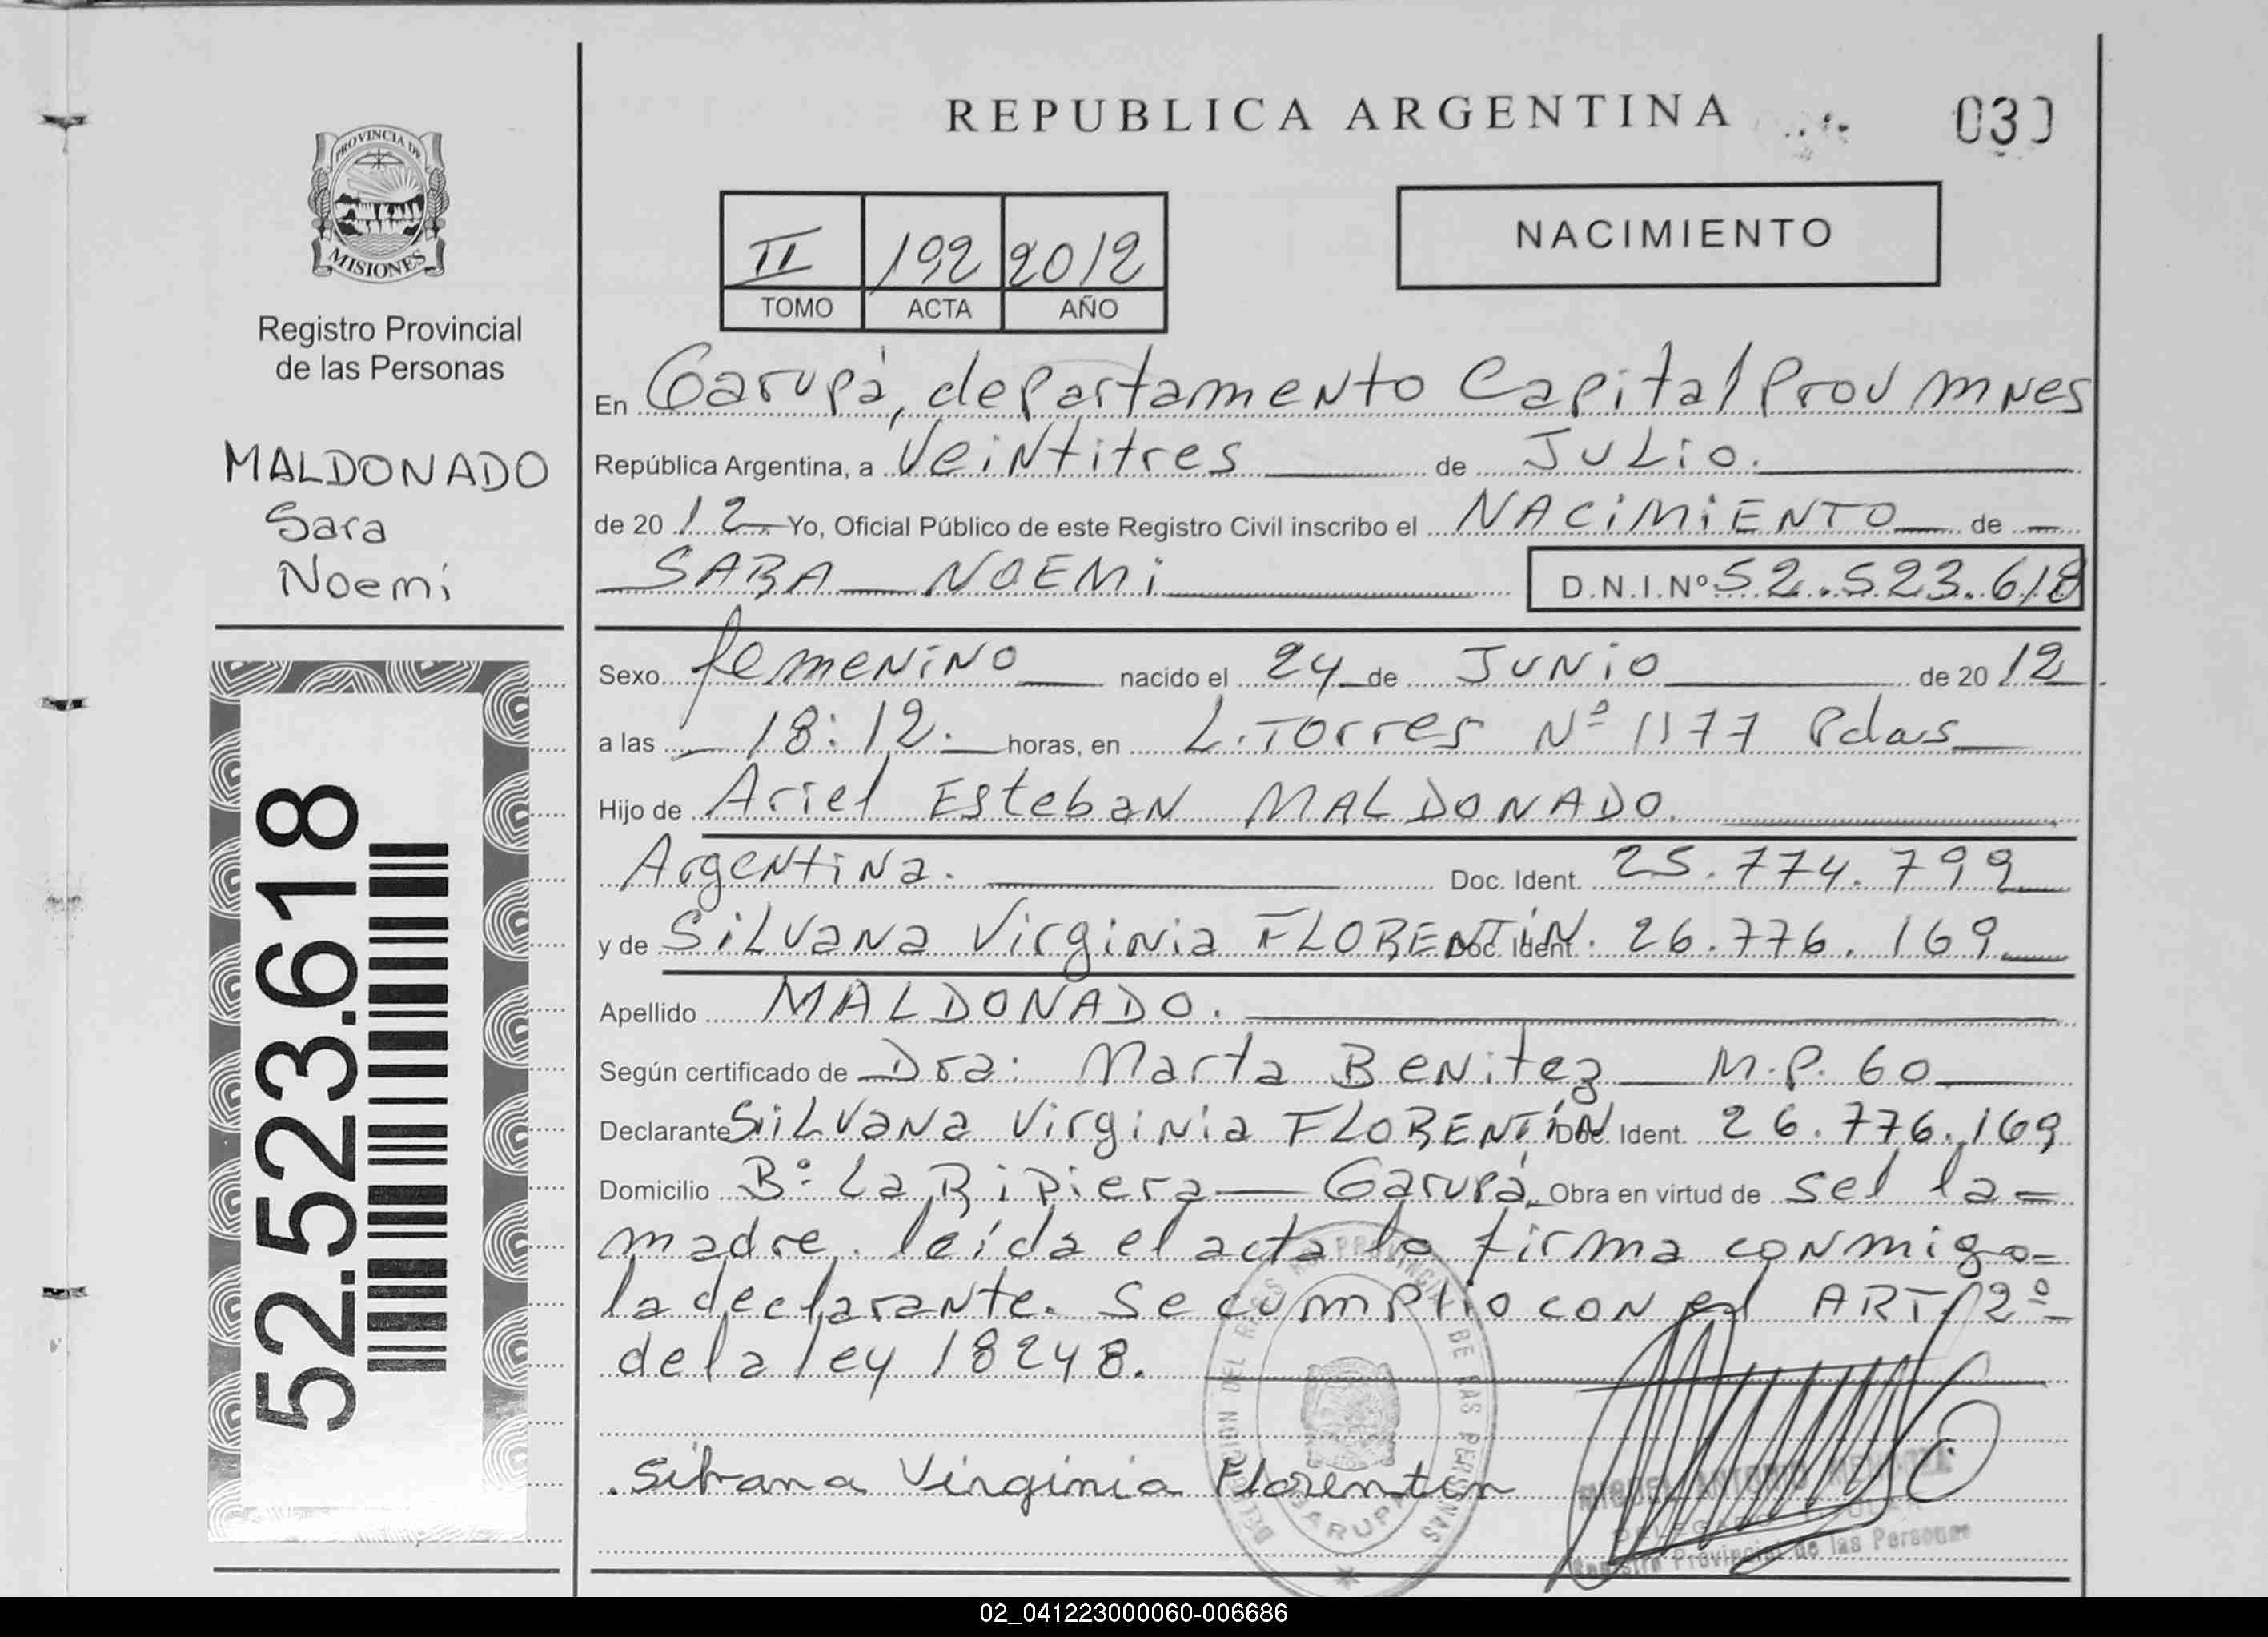 REPUBLICA ARGENTINA
PROVINCIA DE
MISIONES
Registro Provincial
de las Personas
MALDONADO
Sara
Noemi
52.523.618
NACIMIENTO
II 192 2012
TOMO ACTA AÑO
En Garupá, departamento Capital Prov mnes
República Argentina, a veintitres de Julio.
de 20 12 Yo, Oficial Público de este Registro Civil inscribo el NACIMIENTO de
SARA NOEMI D.N.I.Nº 52.523.618
Sexo femenino nacido el 24 de Junio de 20 12
a las 18:12. horas, en L. Torres Nº 1177 Pdas
Hijo de Ariel Esteban MALDONADO.
Argentina. Doc. Ident. 25.774.799
y de Silvana Virginia FLORENTÍN. Doc. Ident. 26.776.169
Apellido MALDONADO.
Según certificado de Dra: Marta Benitez M.P. 60
Declarante Silvana Virginia FLORENTÍN Doc. Ident. 26.776.169
Domicilio Bº La Garupá, Obra en virtud de sel la=
madre. leída el acta lo firma conmigo=
la declarante. Se cumplio con el ART. 2º
de la ley 18248.
Silvana Virginia Florentin
DELEGACION DEL REGISTRO PROVINCIAL DE LAS PERSONAS
GARUPA
MIGUEL ANTONIO
DELEGADO
Registro Provincial de las Personas
02_041223000060-006686